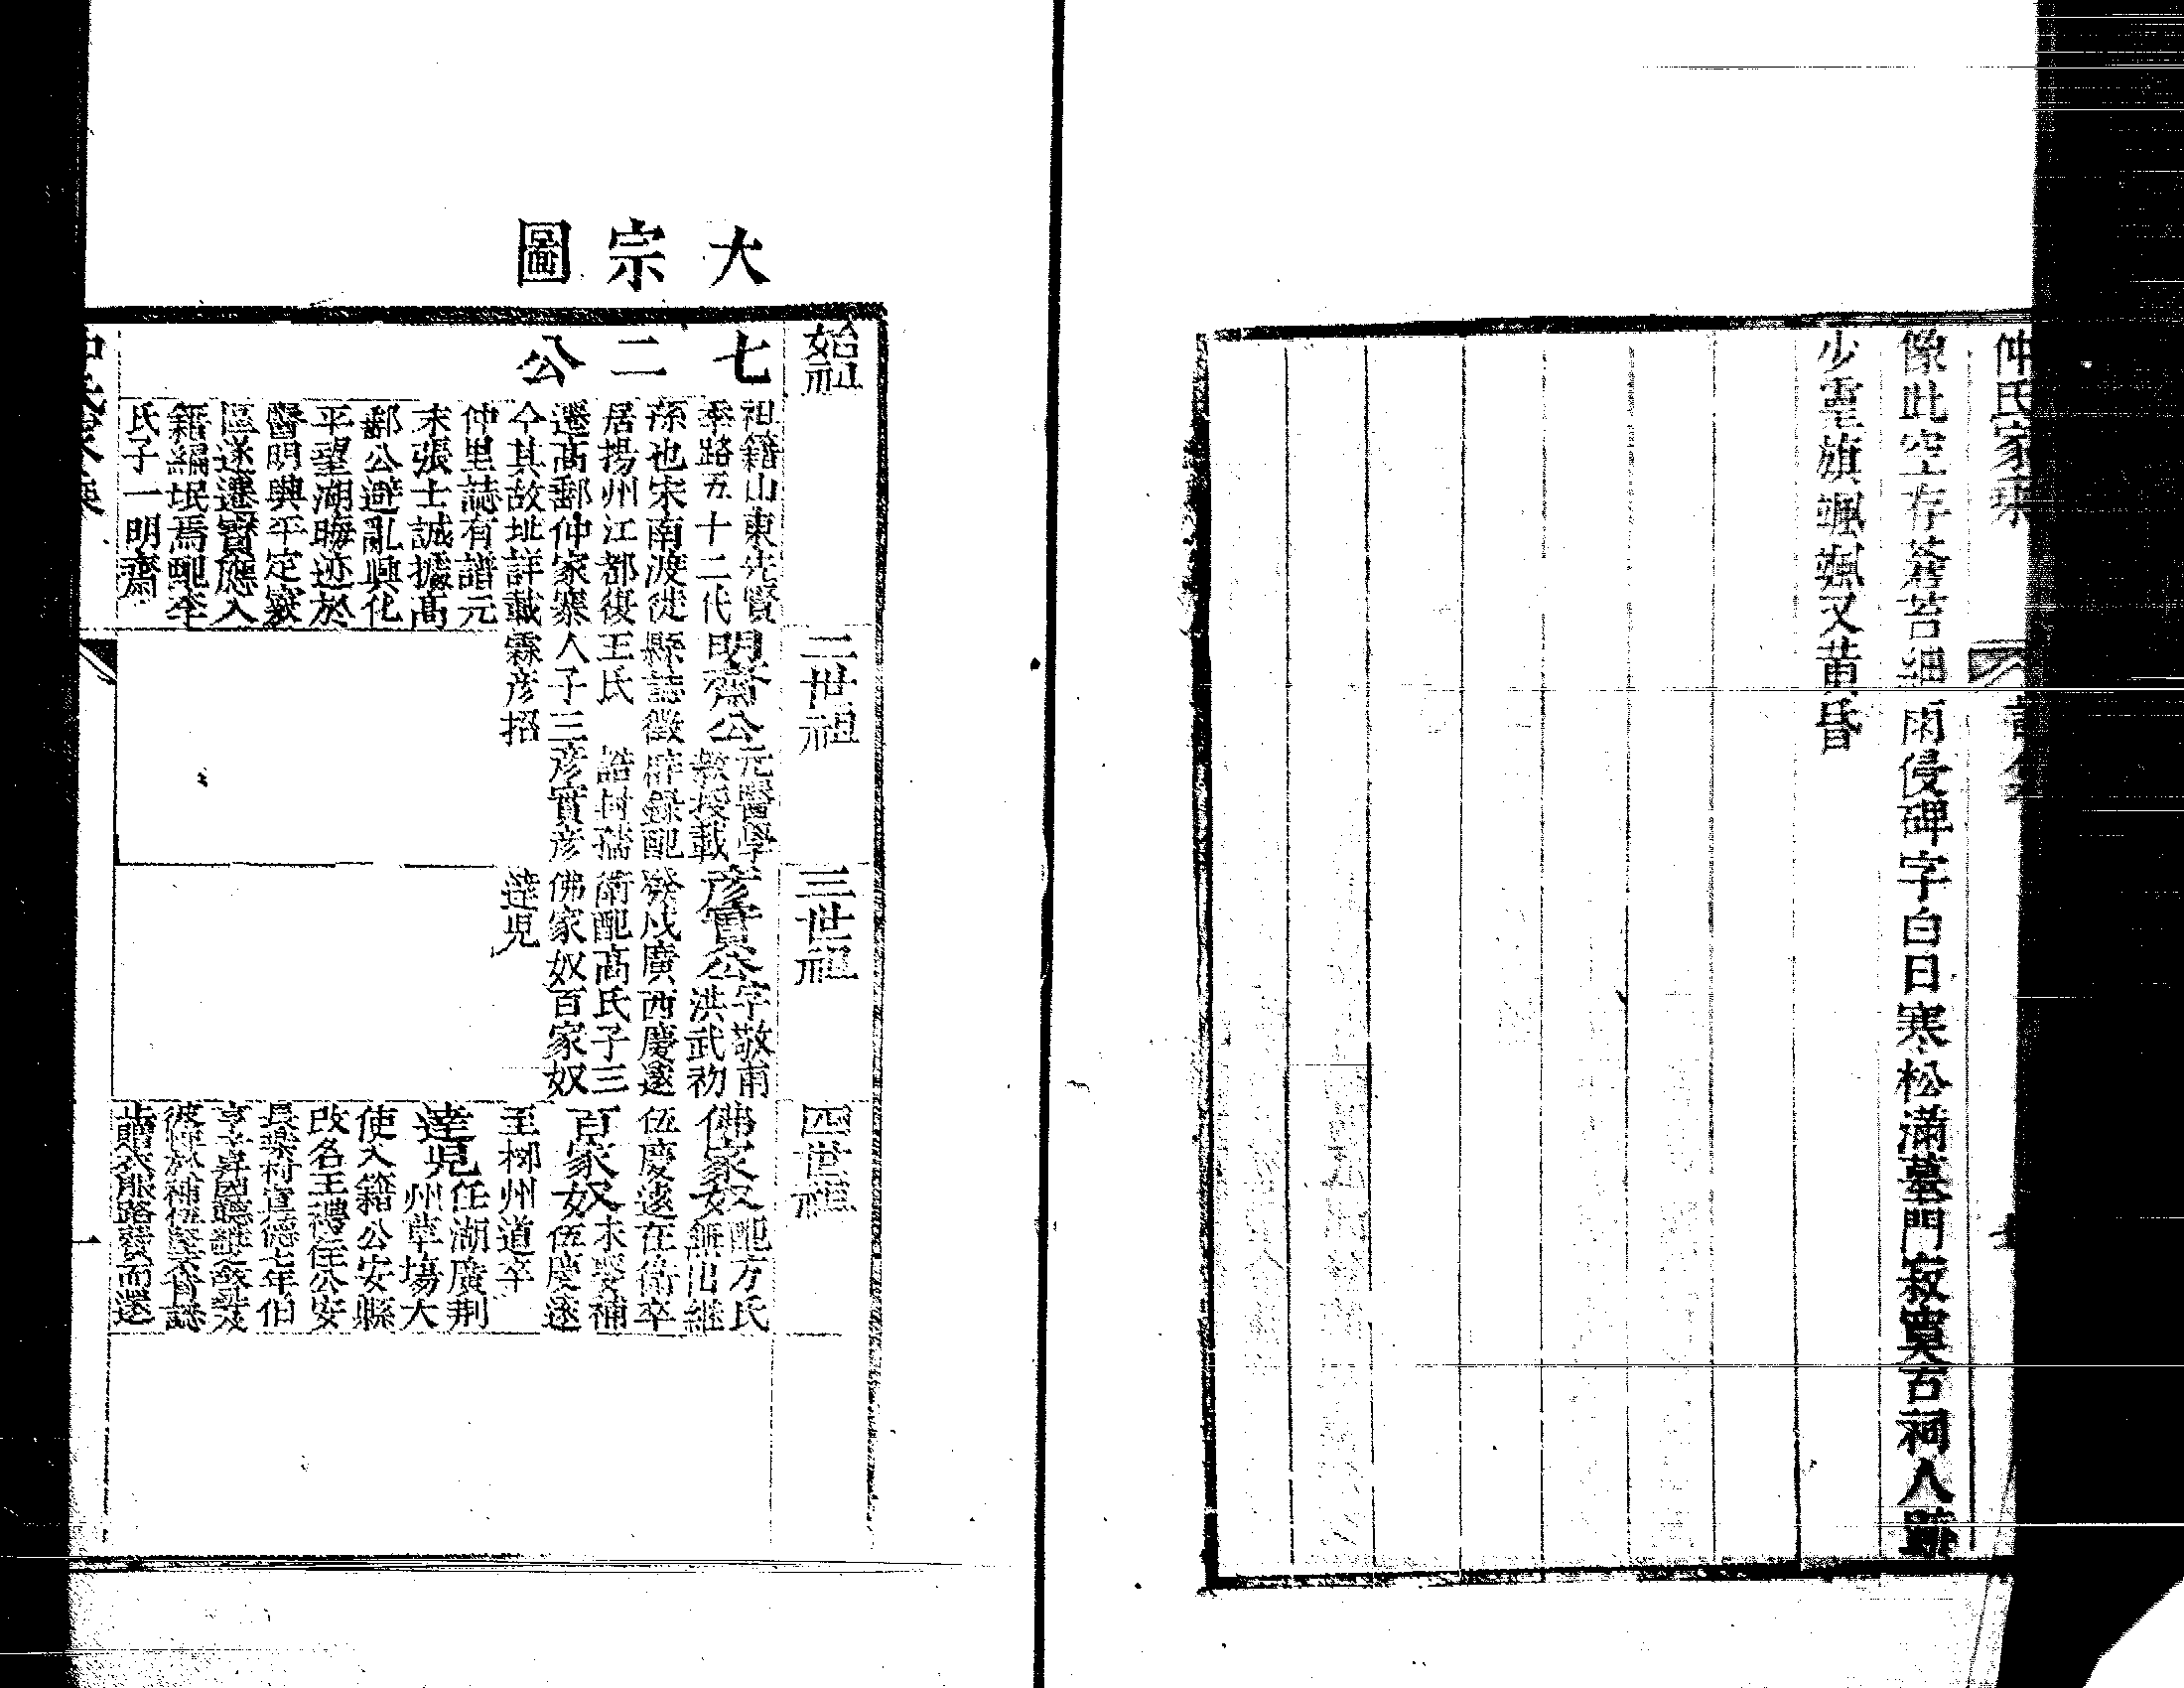 仲氏家乘
像此空存蒼苔細雨侵碑字白日寒松滿墓門寂寞古祠人跡
少靈旗颯颯又黃昏
大宗圖
始祖
七二公
祖籍山東先賢
季路五十二代
孫也宋南渡徙
居揚州江都復
遷高郵仲家寨
今其故址詳載
仲里誌有譜元
末張士誠據高
郵公避亂興化
平望湖晦迹於
醫明興平定竄
區遂遷寶應入
籍編氓焉配李
氏子一明齋
二世祖
明齋公元醫學
教授載
縣誌徵辟錄配
王氏 誥封孺
人子三彥實彥
霖彥招
三世祖
彥實公字敬甫
洪武初
發戍廣西慶遂
衛配高氏子三
佛家奴百家奴
達児
四世祖
佛家奴配方氏
無出継
伍慶遂在衛卒
百家奴未娶補
伍慶遂
至柳州道卒
達児任湖廣荆
州草場大
使入籍公安縣
改名王禮住公安
長樂村宣德七年伯